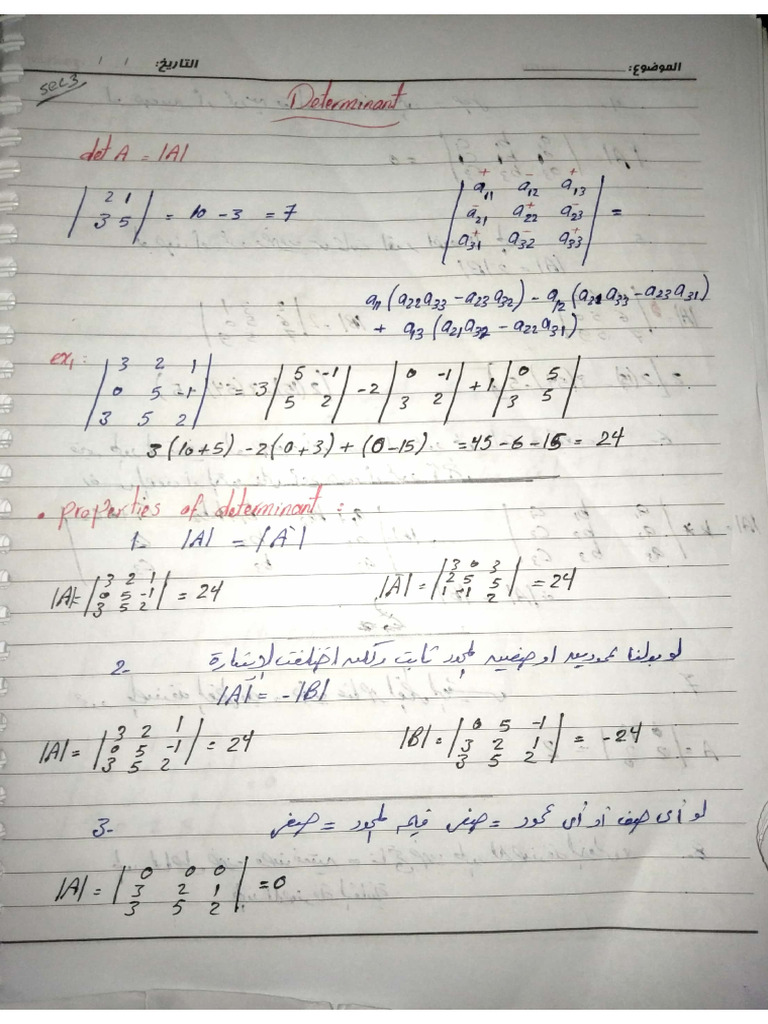 الموضوع:
التاريخ: / /
sec3
Determinant
det A = |A|
| 2 1 |
| 3 5 | = 10 - 3 = 7
| a11+ a12- a13+ |
| a21- a22+ a23- | =
| a31+ a32- a33+ |
a11(a22a33 - a23a32) - a12(a21a33 - a23a31)
+ a13(a21a32 - a22a31)
ex1:
| 3 2 1 |
| 0 5 -1 |
| 3 5 2 |
= 3 | 5 -1 | - 2 | 0 -1 | + 1 | 0 5 |
| 5 2 | | 3 2 | | 3 5 |
3(10+5) - 2(0+3) + (0-15) = 45 - 6 - 15 = 24
• properties of determinant:
1- |A| = |A`|
|A| = | 3 2 1 |
| 0 5 -1 | = 24
| 3 5 2 |
|A| = | 3 0 3 |
| 2 5 5 | = 24
| 1 -1 2 |
2- لو بدلنا عمودين او صفين المحدد ثابت ولكن اختلفت الإشارة
|A| = -|B|
|A| = | 3 2 1 |
| 0 5 -1 | = 24
| 3 5 2 |
|B| = | 0 5 -1 |
| 3 2 1 | = -24
| 3 5 2 |
3- لو أى صف أو أى عمود = صفر قيمة المحدد = صفر
|A| = | 0 0 0 |
| 3 2 1 | = 0
| 3 5 2 |